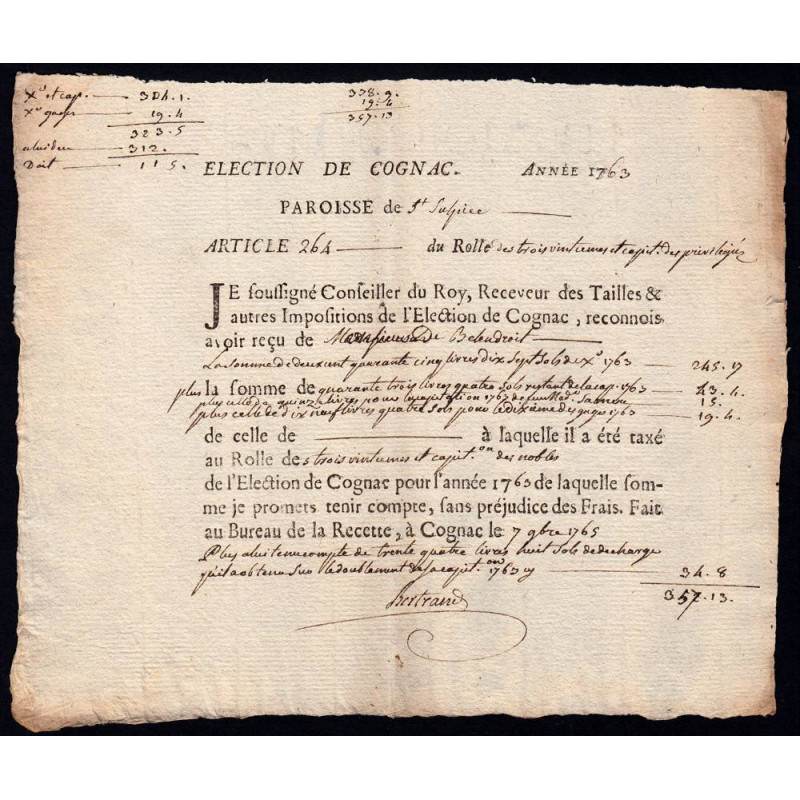 X.e et cap. — 304.1.
X.e gages — 19.4
323.5
312.
Doit — 11 5.
338.9.
19.4
357.13
ELECTION DE COGNAC. ANNÉE 1763
PAROISSE de St Sulpice
ARTICLE 264 du Rolle des trois vintiemes et capit. des privilegiés
JE soussigné Conseiller du Roy, Receveur des Tailles &
autres Impositions de l'Election de Cognac, reconnois
avoir reçu de Monsieur De
La somme de deux cent quarante cinq livres dix sept sols de X.e 1763 — 245.17
plus la somme de quarante trois livres quatre sols restant de la cap. 1763 — 43.4
plus celle de quinze livres pour la capitation 1763 de — 15.
plus celle de dix neuf livres quatre sols pour le dixième des gages 1763 — 19.4.
de celle de — à laquelle il a été taxé
au Rolle des trois vintiemes et capit.on des nobles
de l'Election de Cognac pour l'année 1763 de laquelle som-
me je promets tenir compte, sans préjudice des Frais. Fait
au Bureau de la Recette, à Cognac le 7 9bre 1765
Plus a lui tenu compte de trente quatre livres huit sols de decharge
qu'il a obtenu sur le doublement de sa capit.on 1763 cy — 34.8
357.13.
Bertrand